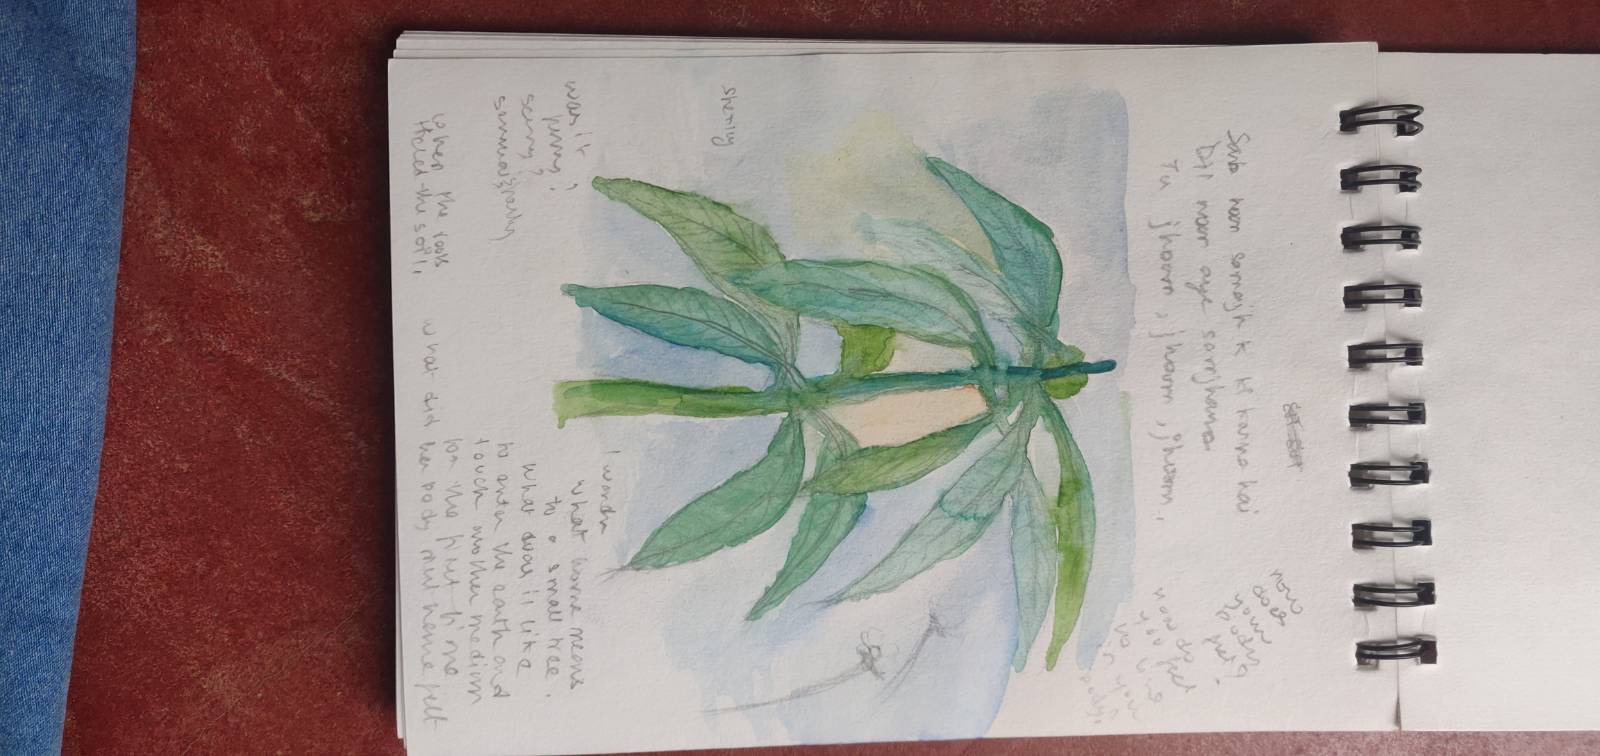 Sab kam samajh k ki karna hai
Dil nam aye samjhana
Tu jhoom, jhoom, jhoom,
how
does
your
body
feel?
how do
you feel
in your
body,
was it
funny,
scary,
I wonder
what home means
to a small tree.
what does it like
to enter the earth and
touch another medium
for the first time
when the roots
touched the soil,
what did her body meet home felt